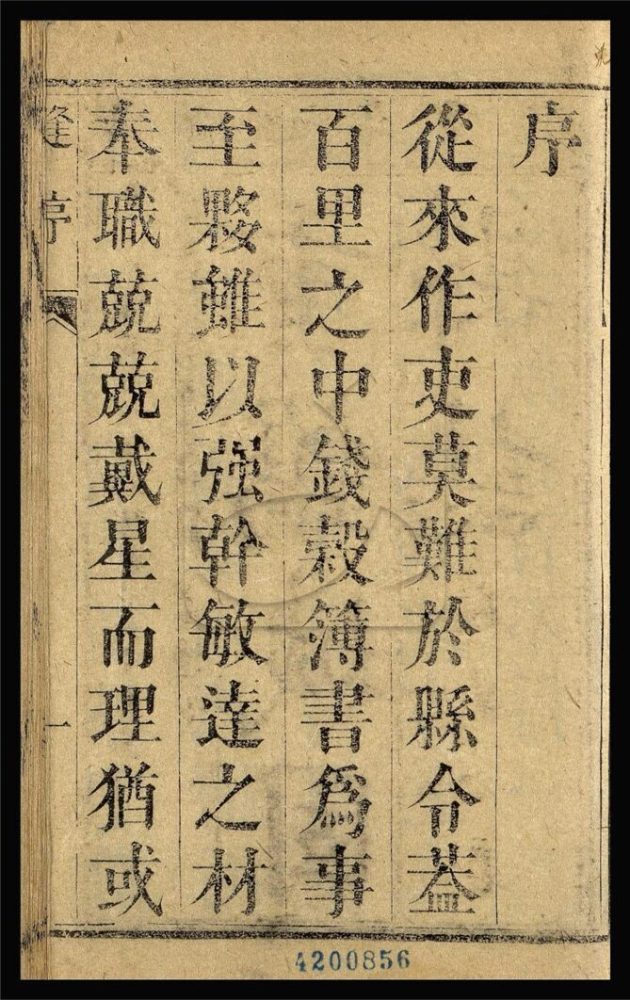 序
從來作吏莫難於縣令葢
百里之中錢榖簿書爲事
至夥雖以强幹敏達之材
奉職兢兢戴星而理猶或
序
一
4200856